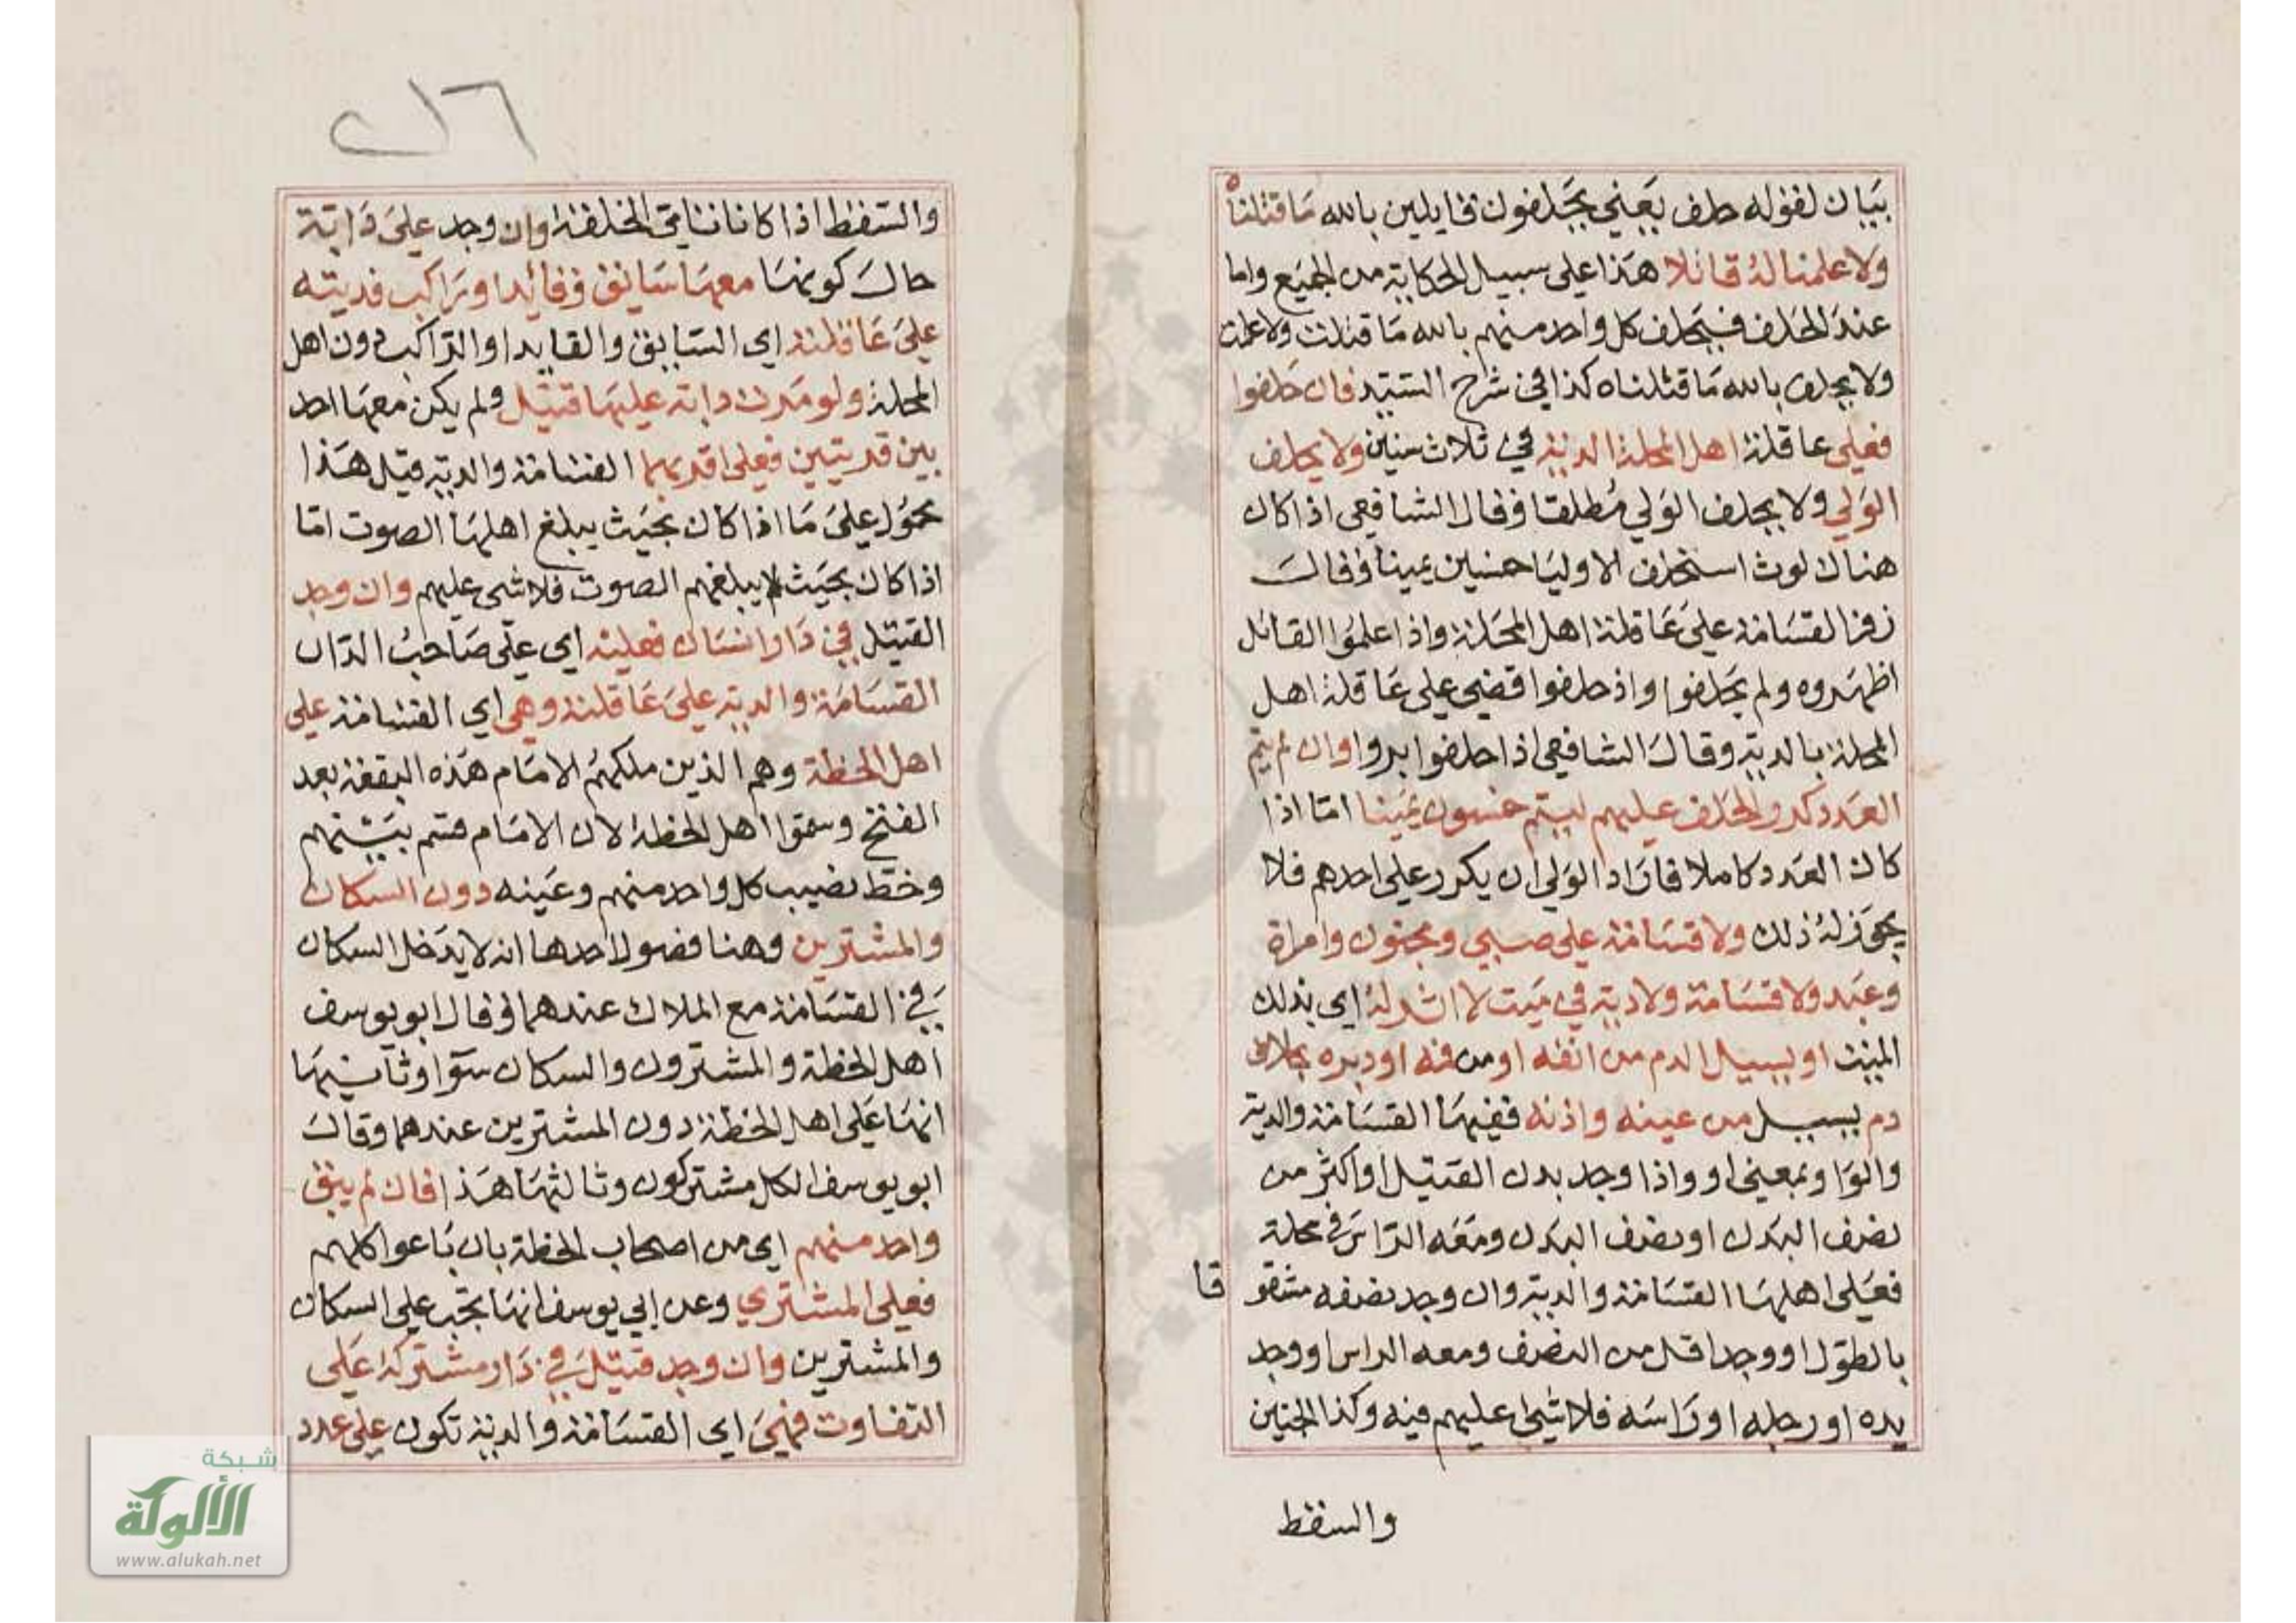 بيان لقوله حلف يعني يحلفون قايلين بالله ما قتلناه
ولا علمنا له قاتلا هذا على سبيل الحكاية من الجميع واما
عند الحلف فيحلف كل واحد منهم بالله ما قتلت ولا علمت
ولا يحلف بالله ما قتلناه كذا في شرح السيد فان حلفوا
فعلى عاقلة اهل المحلة الدية في ثلاث سنين ولا يحلف
الولي ولا يحلف الولي مطلقا وقال الشافعي اذا كان
هناك لوث استحلف الاوليا خمسين يمينا وقال
زفر القسامة على عاقلة اهل المحلة واذا علموا القاتل
اظهروه ولم يحلفوا واذ حلفوا قضي على عاقلة اهل
المحلة بالدية وقال الشافعي اذا حلفوا بروا وان لم يتم
العدد كرر الحلف عليهم ليتم خمسون يمينا اما اذا
كان العدد كاملا فاراد الولي ان يكرر على احدهم فلا
يجوز له ذلك ولا قسامة على صبي ومجنون وامراة
وعبد ولا قسامة ولا دية في ميت لا اثر له اي بذلك
الميت او يسيل الدم من انفه او من فمه او دبره بخلاف
دم يسيل من عينه واذنه ففيها القسامة والدية
والواو بمعنى او واذا وجد بدن القتيل او اكثر من
نصف البدن او نصف البدن ومعه الراس في محلة
فعلى اهلها القسامة والدية وان وجد نصفه مشقو قا
بالطول او وجد اقل من النصف ومعه الراس او وجد
يده او رجله او راسه فلا شي عليهم فيه وكذا الجنين
والسقط
والسقط اذا كانا تامي الخلقة وان وجد على دابة
حال كونها معها سائق وقائد او راكب فديته
على عاقلته اي السايق والقايد او الراكب دون اهل
المحلة ولو مرت دابة عليها قتيل ولم يكن معها احد
بين قريتين فعلى اقربهما القسامة والدية قيل هذا
محمول على ما اذا كان بحيث يبلغ اهلها الصوت اما
اذا كان بحيث لا يبلغهم الصوت فلا شي عليهم وان وجد
القتيل في دار انسان فعليه اي على صاحب الدار
القسامة والدية على عاقلته وهي اي القسامة على
اهل الخطة وهم الذين ملكهم الامام هذه البقعة بعد
الفتح وسموا اهل الخطة لان الامام قسم بينهم
وخط نصيب كل واحد منهم وعينه دون السكان
والمشترين وهنا فصول احدها انه لا يدخل السكان
في القسامة مع الملاك عندهما وقال ابو يوسف
اهل الخطة والمشترون والسكان سوا وثانيها
انها على اهل الخطة دون المشترين عندهما وقال
ابو يوسف الكل مشتركون وثالثها هذا فان لم يبق
واحد منهم اي من اصحاب الخطة بان باعوا كلهم
فعلى المشتري وعن ابي يوسف انها تجب على السكان
والمشترين وان وجد قتيل في دار مشتركة على
التفاوت فهي اي القسامة والدية تكون على عدد
شبكة
الألوكة
www.alukah.net